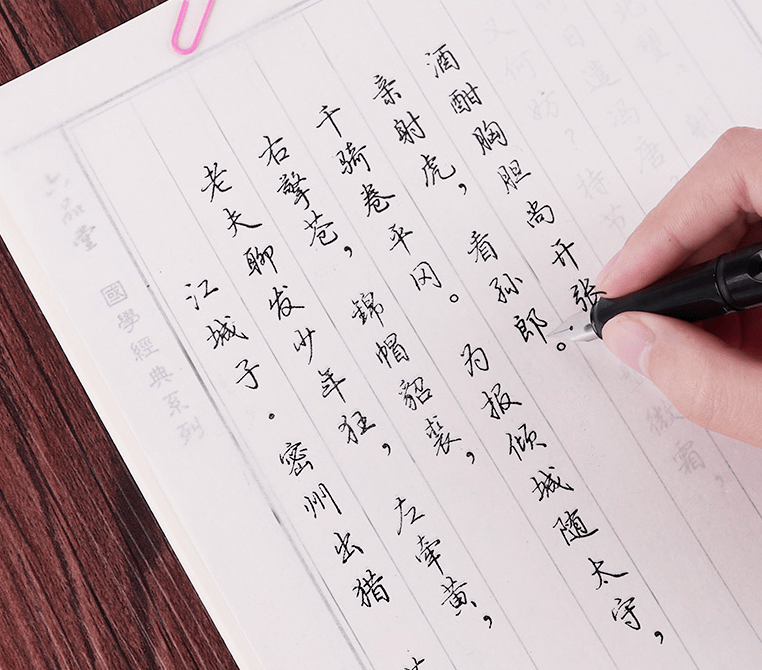 六品堂
國學經典系列
江城子·密州出猎
老夫聊发少年狂，左牵黄，
右擎苍，錦帽貂裘，
千骑卷平冈。为报倾城随太守，
亲射虎，看孙郎。
酒酣胸胆尚开张。微霜，
又何妨？持节
日遣冯唐？
北望，射